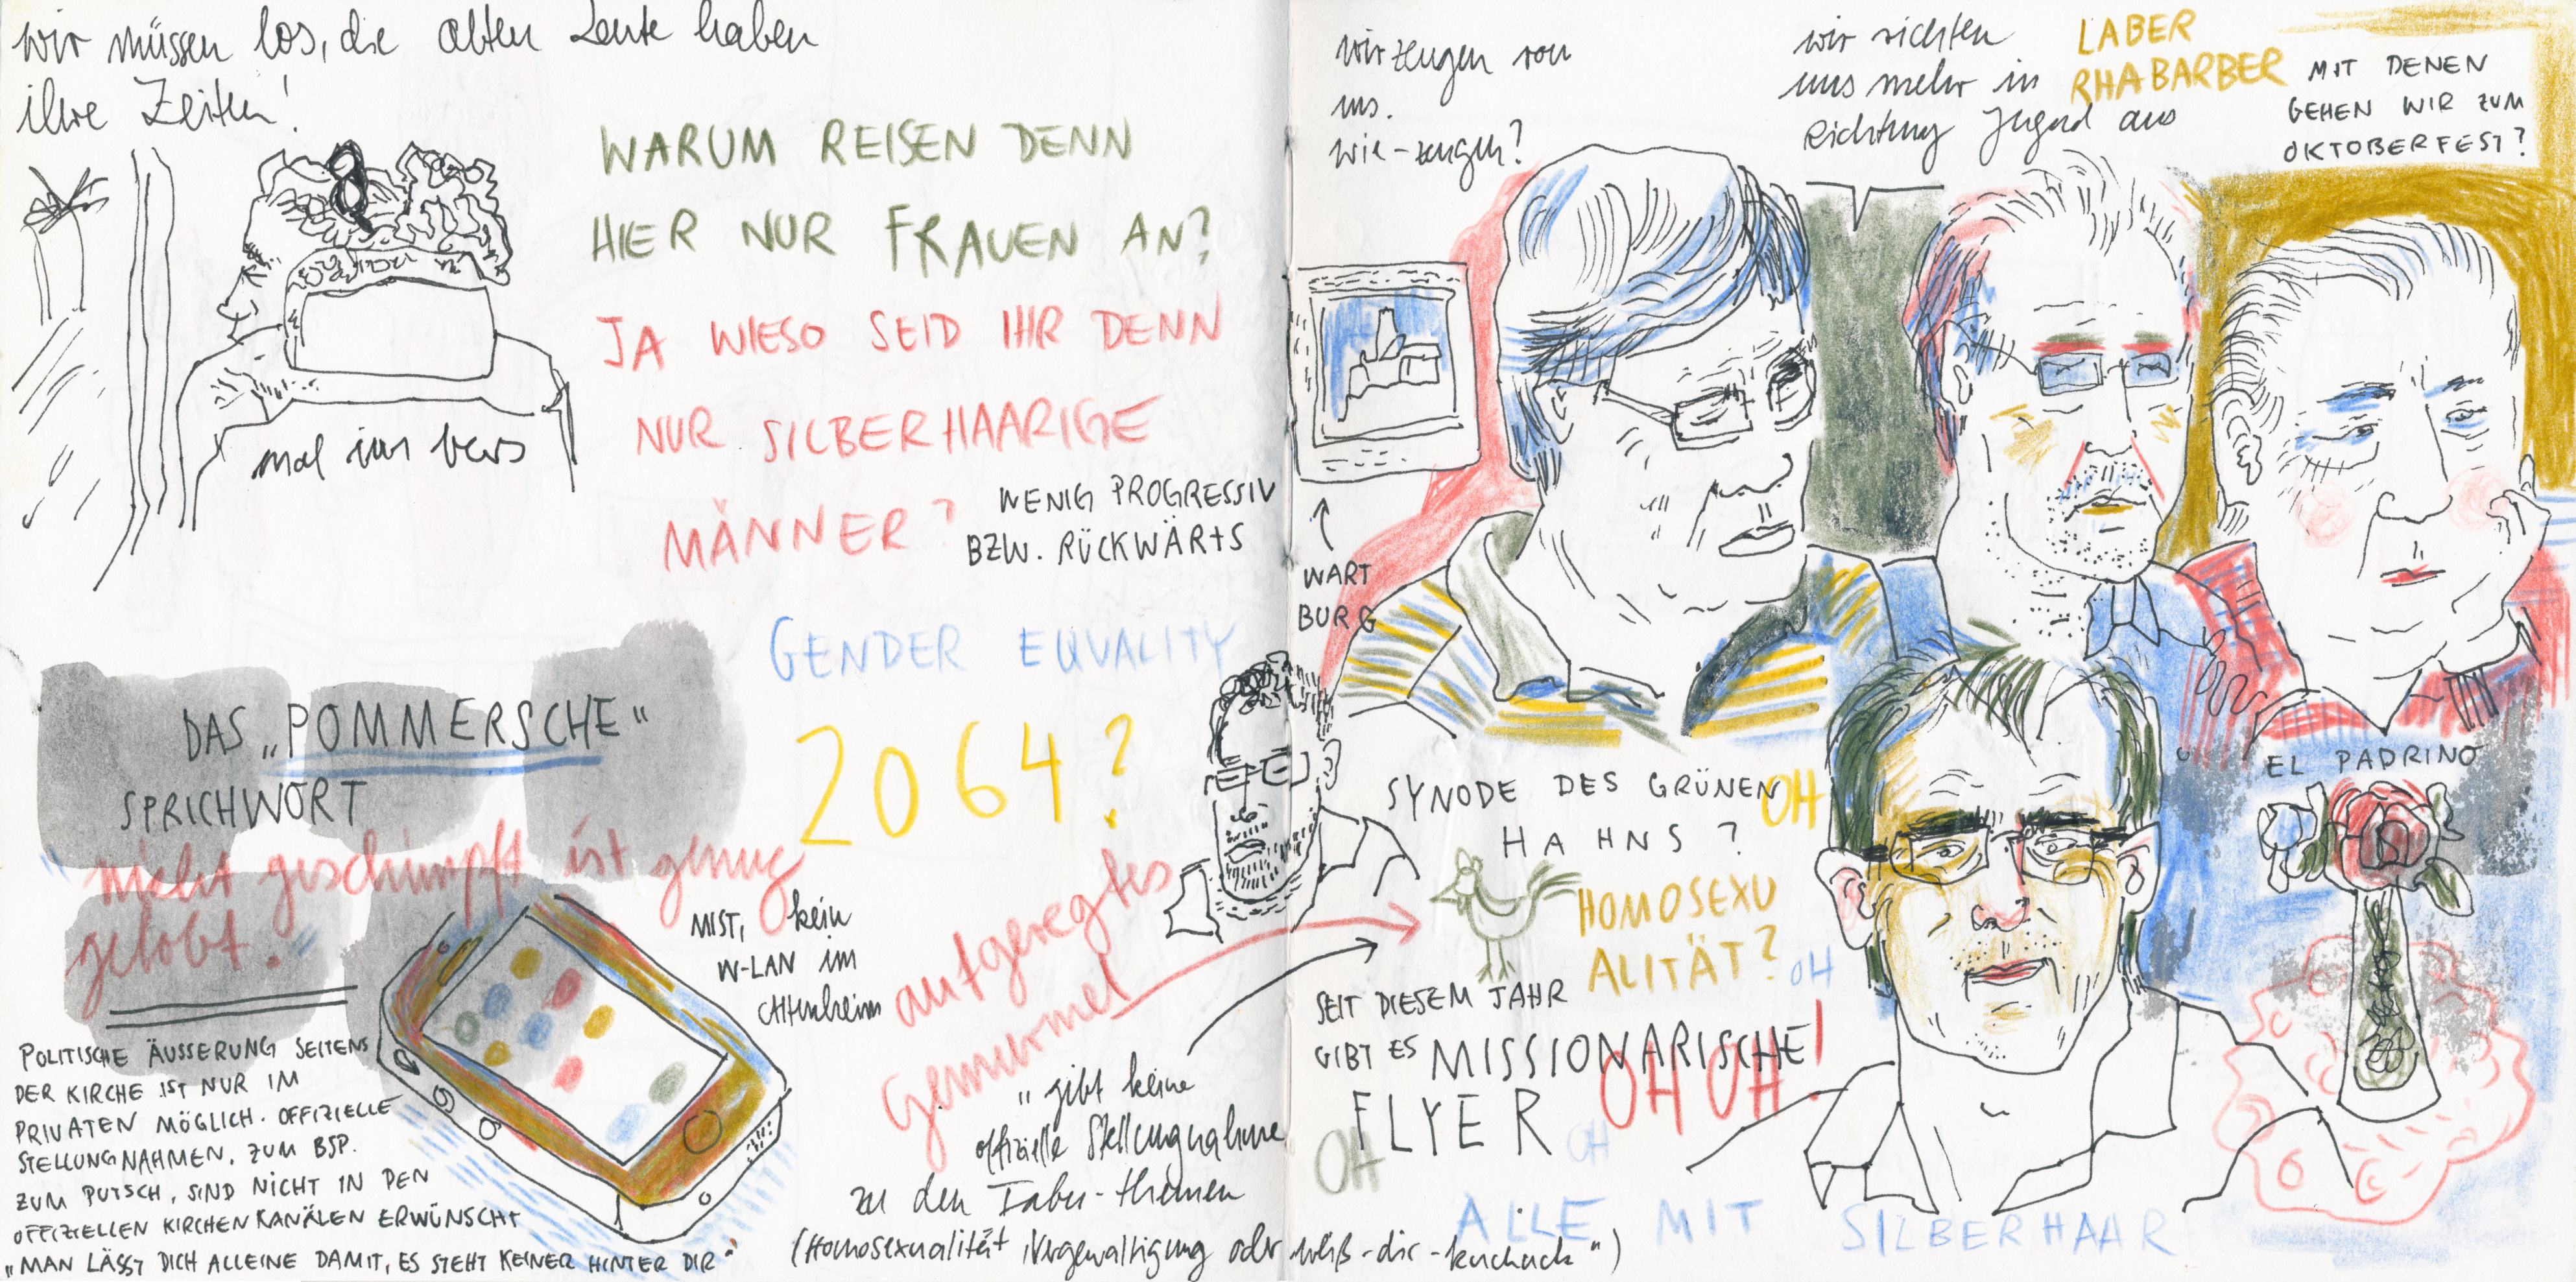 wir müssen los, die alten Leute haben
ihre Zeiten!
mal im bus
WARUM REISEN DENN
HIER NUR FRAUEN AN?
JA WIESO SEID IHR DENN
NUR SILBERHAARIGE
MÄNNER?
WENIG PROGRESSIV
BZW. RÜCKWÄRTS
GENDER EQUALITY
2064?
DAS „POMMERSCHE“
SPRICHWORT
"nicht geschimpft ist genug
gelobt."
MIST, kein
W-LAN im
Altenheim
POLITISCHE ÄUSSERUNG SEITENS
DER KIRCHE IST NUR IM
PRIVATEN MÖGLICH. OFFIZIELLE
STELLUNGNAHMEN, ZUM BSP.
ZUM PUTSCH, SIND NICHT IN DEN
OFFIZIELLEN KIRCHENKANÄLEN ERWÜNSCHT
"MAN LÄSST DICH ALLEINE DAMIT, ES STEHT KEINER HINTER DIR"
aufgeregtes
Gemurmel
"gibt keine
offizielle Stellungnahme
zu den Tabu-themen
(Homosexualität, Vergewaltigung oder weiß-dir-kuckuck")
wir zeugen von
uns.
wie-zeugen?
wir richten
uns mehr in
Richtung Jugend aus
LABER
RHABARBER
MIT DENEN
GEHEN WIR ZUM
OKTOBERFEST?
WART
BURG
EL PADRINO
SYNODE DES GRÜNEN
HAHNS?
OH
HOMOSEXU
ALITÄT?
OH
SEIT DIESEM JAHR
GIBT ES MISSIONARISCHE
FLYER
OH OH!
OH
OH
ALLE MIT SILBERHAAR